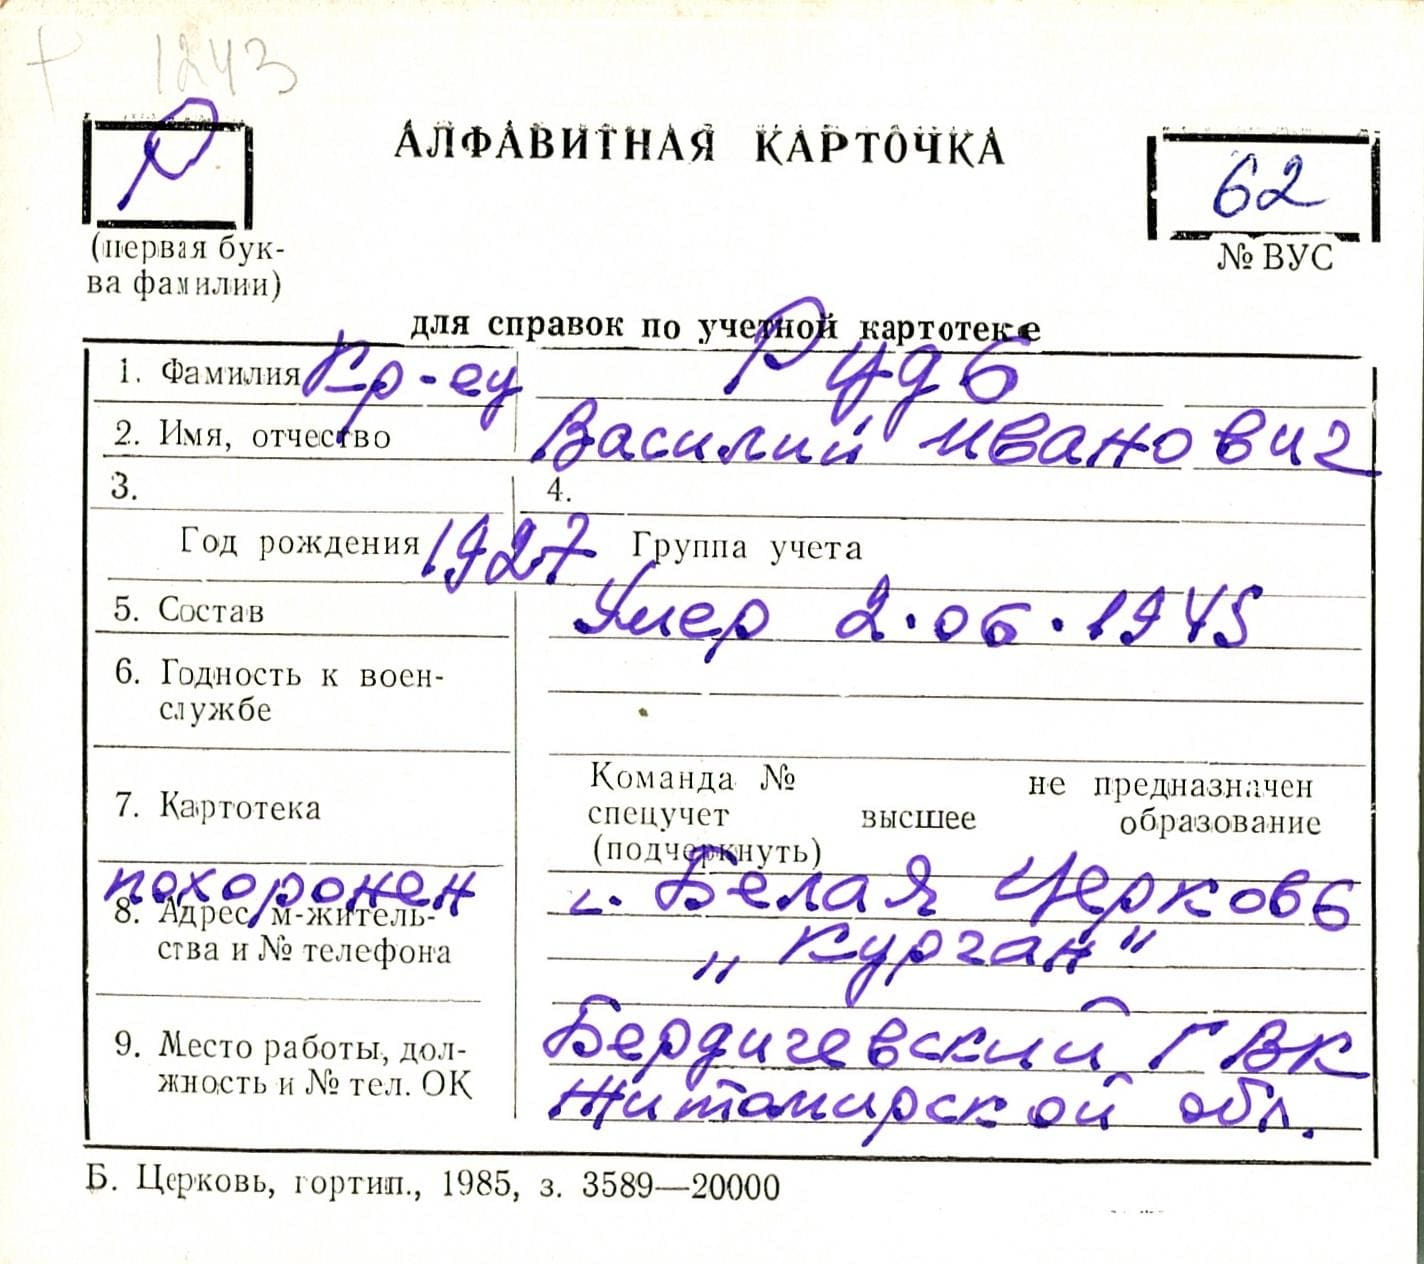 + 1243
Р
АЛФАВИТНАЯ КАРТОЧКА
62
(первая бук-
ва фамилии)
№ ВУС
для справок по учетной картотеке
1. Фамилия Кр-ец Рудь
2. Имя, отчество Василий Иванович
3. 4.
Год рождения 1927 Группа учета
5. Состав Умер 2.06.1945
6. Годность к воен-
службе
7. Картотека
Команда № не предназначен
спецучет высшее образование
(подчеркнуть)
похоронен г. Белая Церковь
8. Адрес м-житель-
ства и № телефона „Курган"
9. Место работы, дол-
жность и № тел. ОК
Бердичевский ГВК
Житомирской обл.
Б. Церковь, гортип., 1985, з. 3589—20000